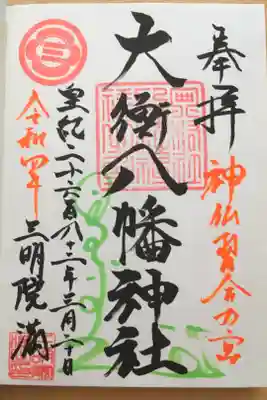 奉拝
神仏習合の宮
大衡八幡神社
皇紀二千六百八十二年三月二十日
令和四年
三明院 満